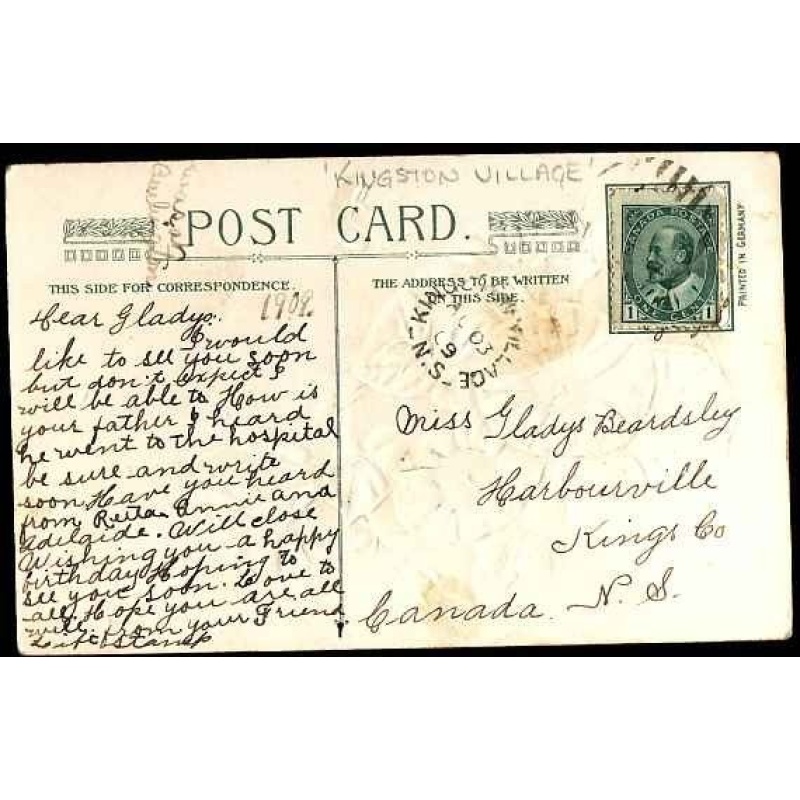 'KINGSTON VILLAGE'
POST CARD.
THIS SIDE FOR CORRESPONDENCE.
THE ADDRESS TO BE WRITTEN
ON THIS SIDE.
PRINTED IN GERMANY
CANADA POSTAGE
1 ONE CENT 1
KINGSTON VILLAGE - N.S.
03
09
1909.
Dear Gladys.
I would
like to see you soon
but don't expect I
will be able to How is
your father I heard
he went to the hospital
be sure and write
soon Have you heard
from Reita Annie and
Adelaide. Will close
Wishing you a happy
birthday Hoping to
see you soon. Love to
all. Hope you are all
well. From your Friend
Miss Gladys Beardsley
Harbourville
Kings Co
Canada. N. S.